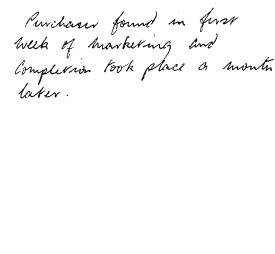 Purchaser found in first
week of marketing and
Completion took place a month
later.